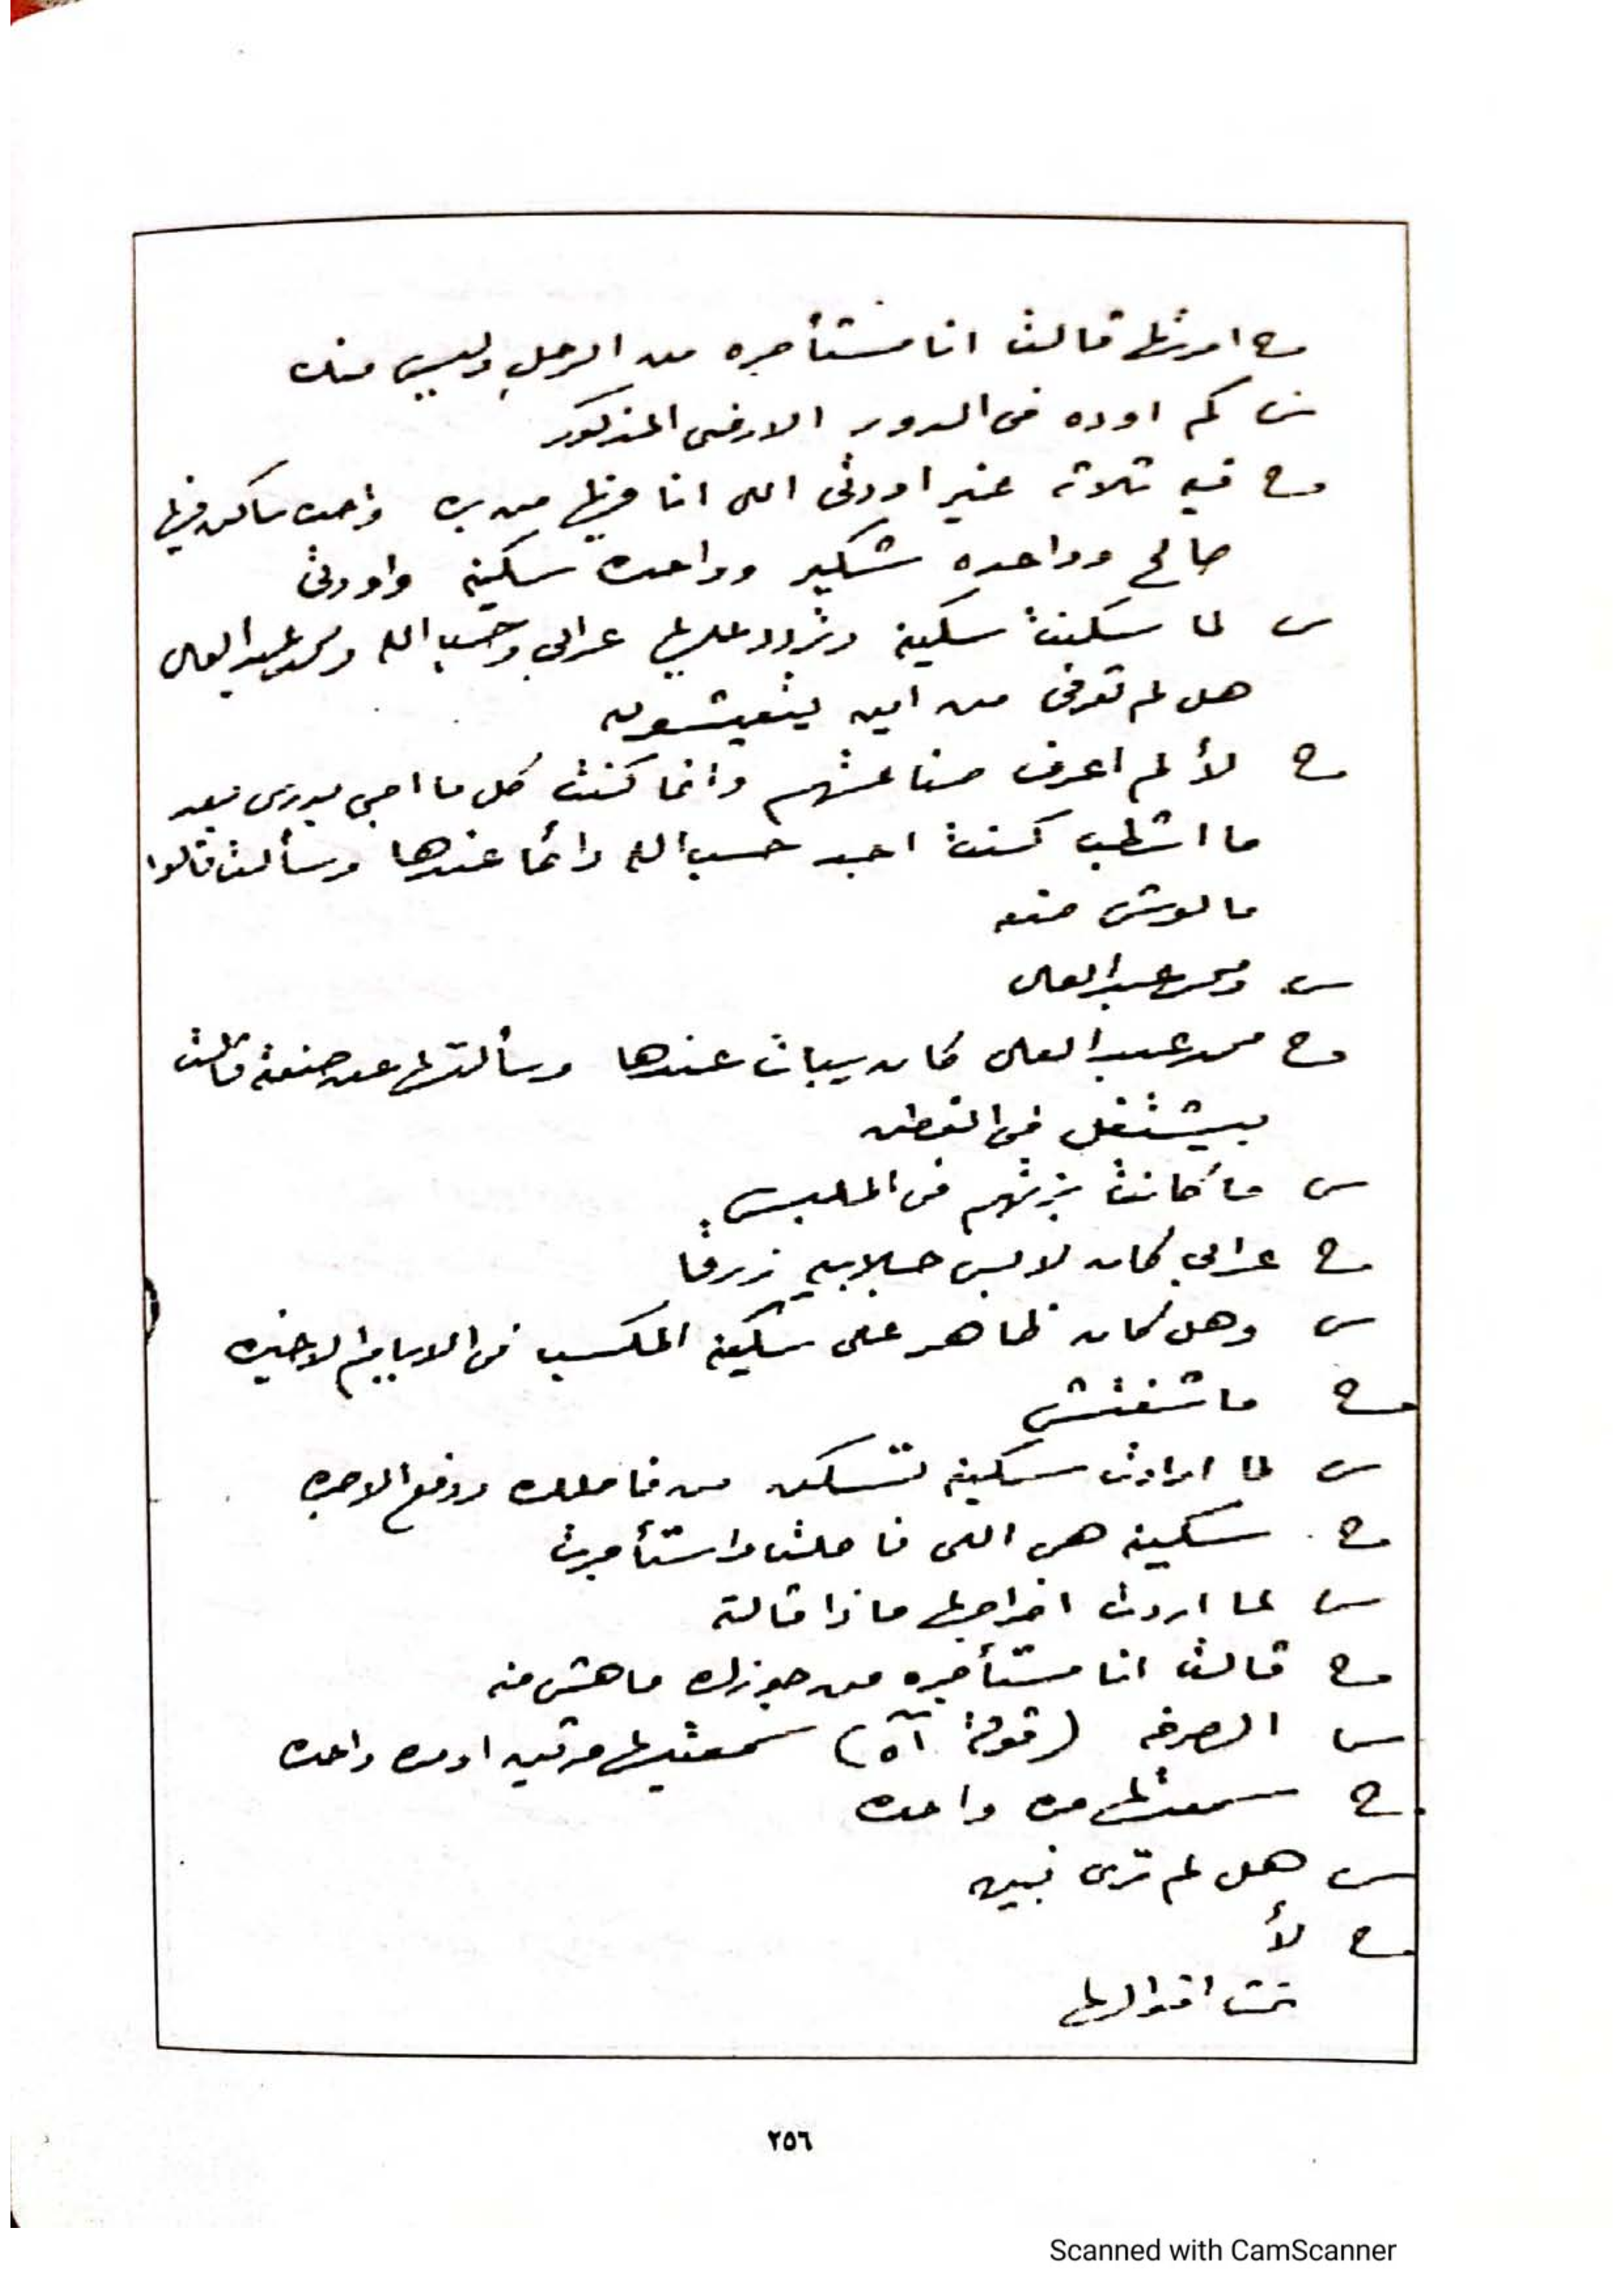 ج امرتها قالت انا مستأجره من الرجل وليس منك
س كم اوده فى الدور الارضى المذكور
ج فيه تلاته غير اودتى اللى انا فيها من بره واحده ساكن فيها
صالح وواحده شكير وواحده سكينه واودتى
س لما سكنت سكينة وتردد عليها عرابي وحسب الله ومحمد عبد العال
هل لم تعرفى من اين يتعيشون
ج لأ لم اعرف صناعتهم وانما كنت كل ما اجى بدرى بعد
ما اشطب كنت اجد حسب الله دائما عندها وسألت قالوا
مالوش صنعه
س ومحمد عبد العال
ج محمد عبد العال كان بيبات عندها وسألتها عن صنعته قالت
بيشتغل فى القطن
س ما كانت بزتهم فى الملبس
ج عرابي كان لابس جلابيه زرقا
س وهل كان ظاهر على سكينه المكسب فى الايام الاخيره
ج ما شفتش
س لما ارادت سكينه تسكن من قابلك ودفع الاجره
ج سكينه هى اللى قابلت واستأجرت
س لما اردت اخراجها ماذا قالته
ج قالت انا مستأجره من جوزك ماهش منه
س الصرخه (قولة آه) سمعتيها مرتين او مره واحده
ج سمعتها مره واحده
س هل لم ترى نبيه
ج لأ
تمت اقوالها
٢٥٦
Scanned with CamScanner